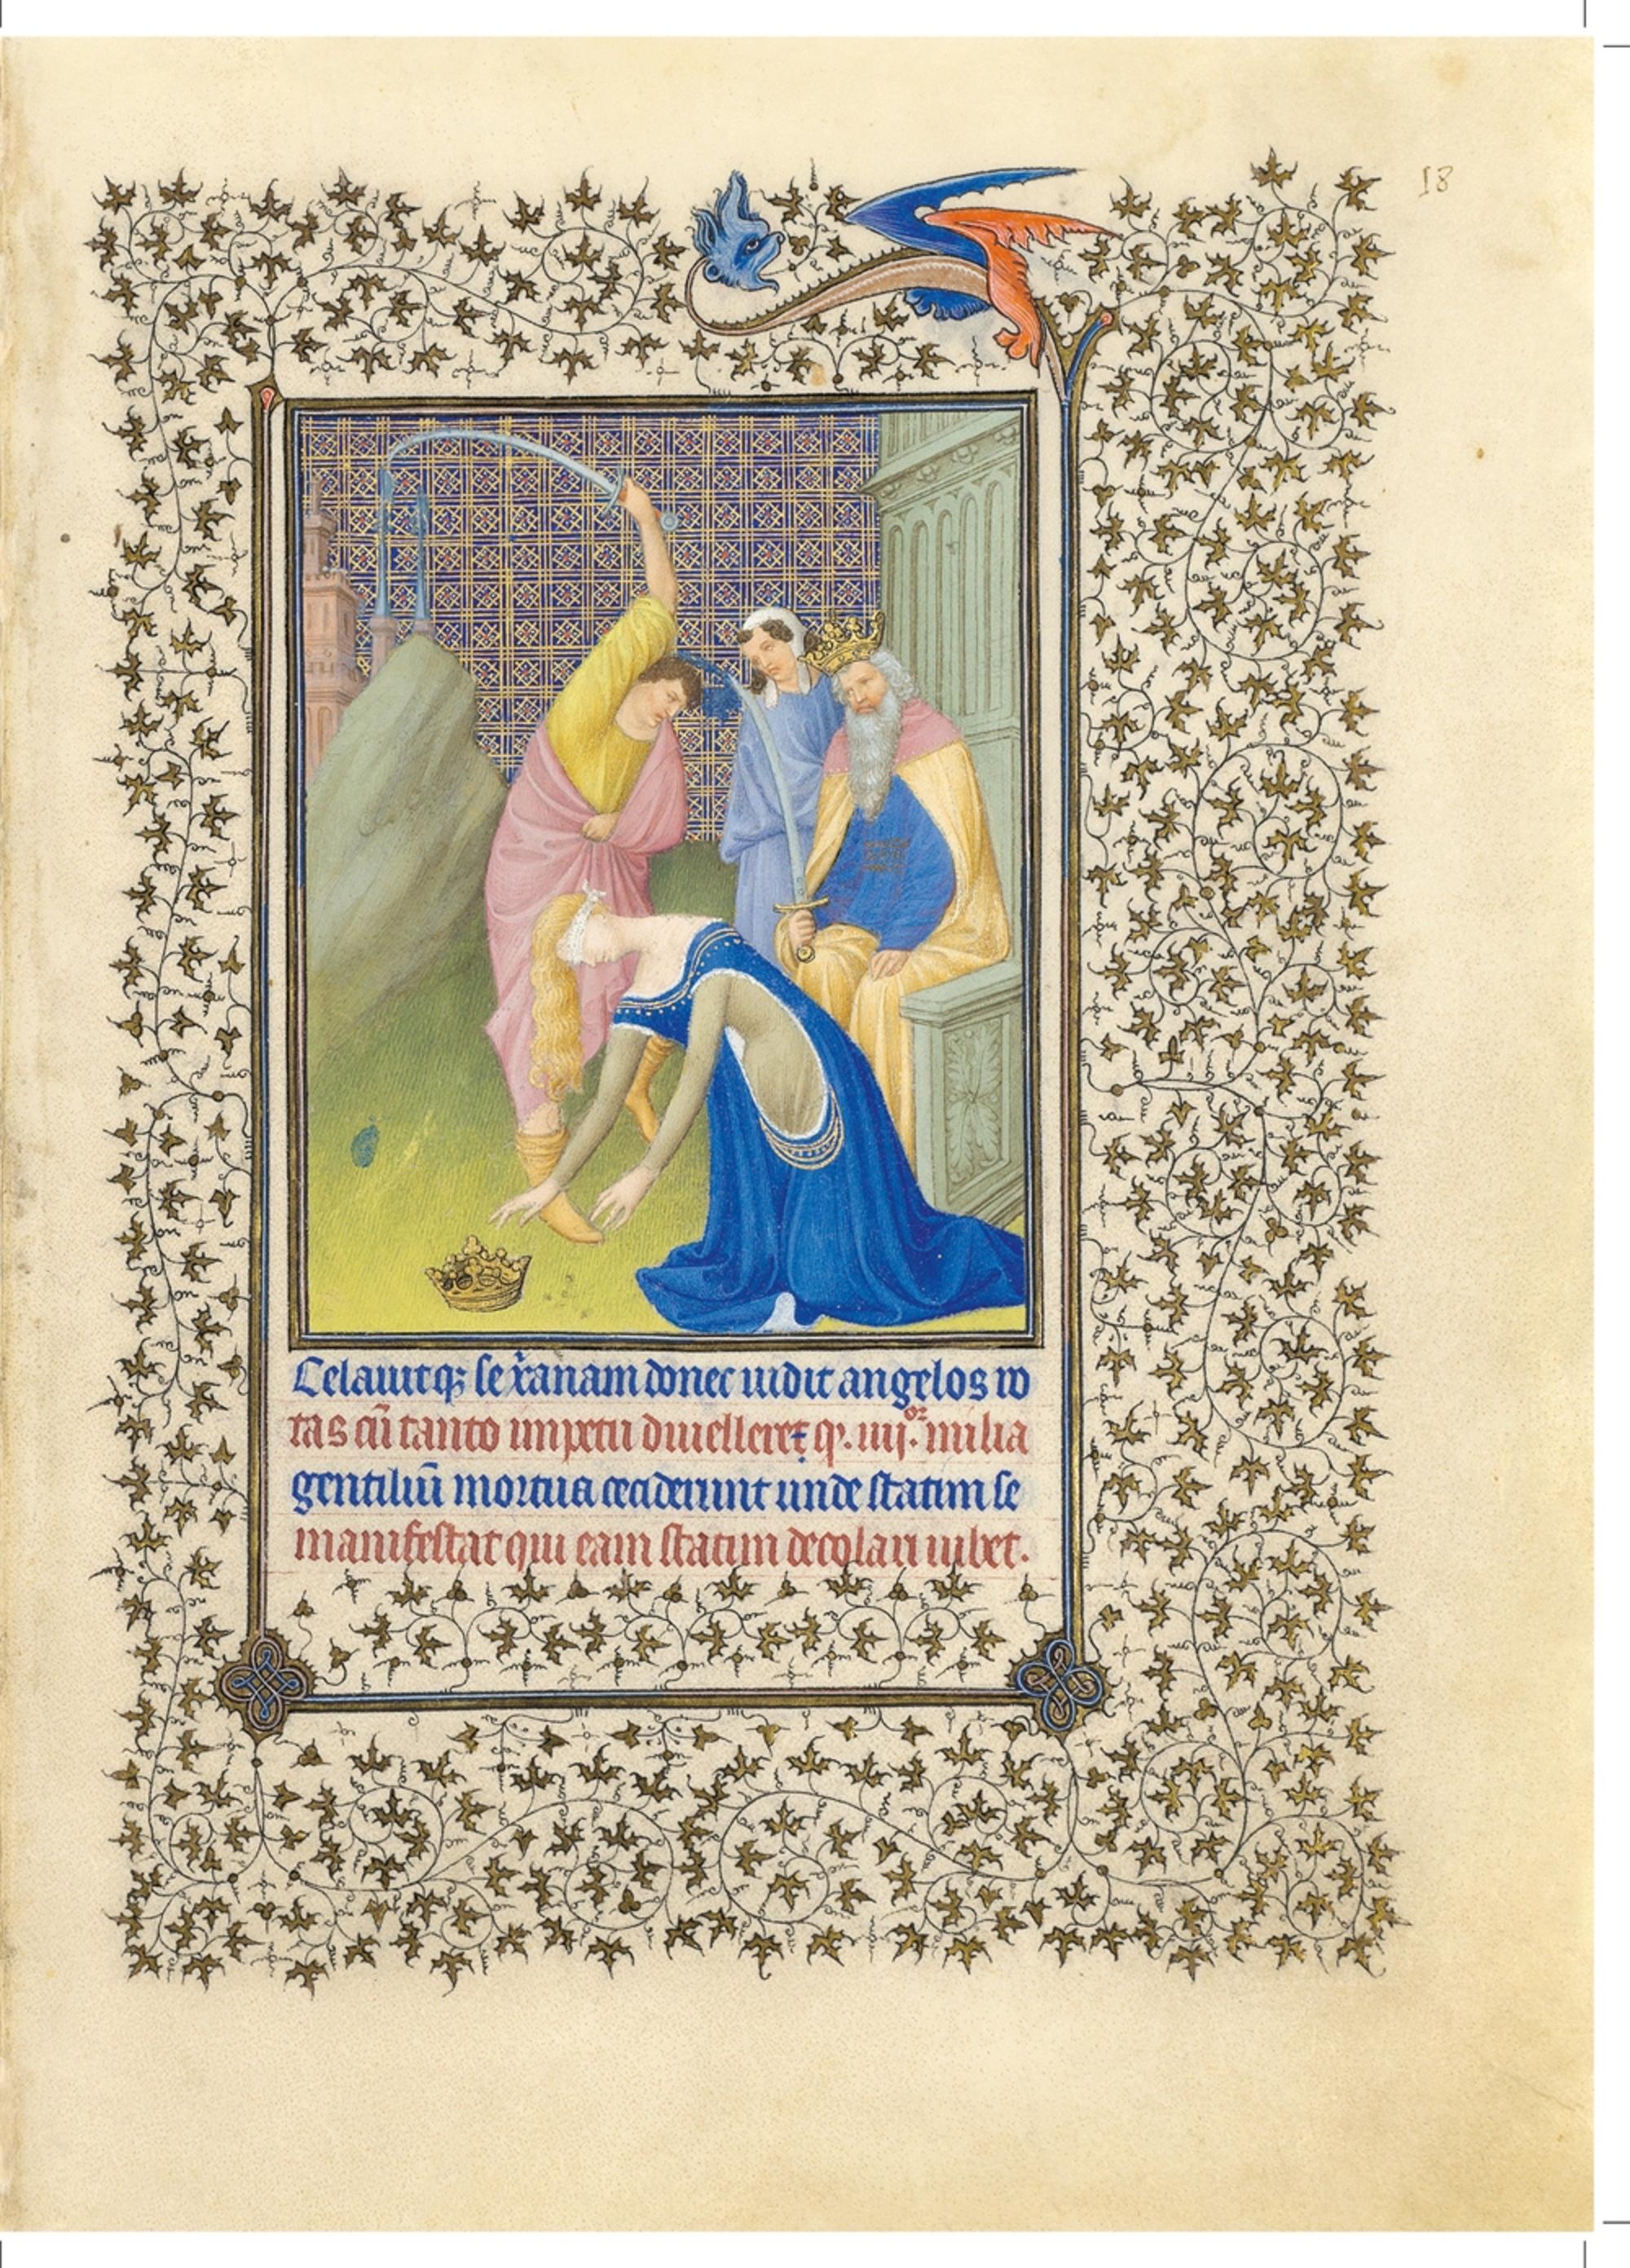 18
Celauitq; se xp̄anam donec uidit angelos ro
tas cū tanto impetu diuelleret q. iiijor. milia
gentiliū mortua ceciderunt unde statim se
manifestat qui eam statim decolari iubet.